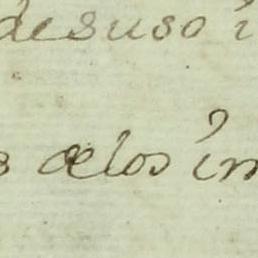 desuso i
s delos im